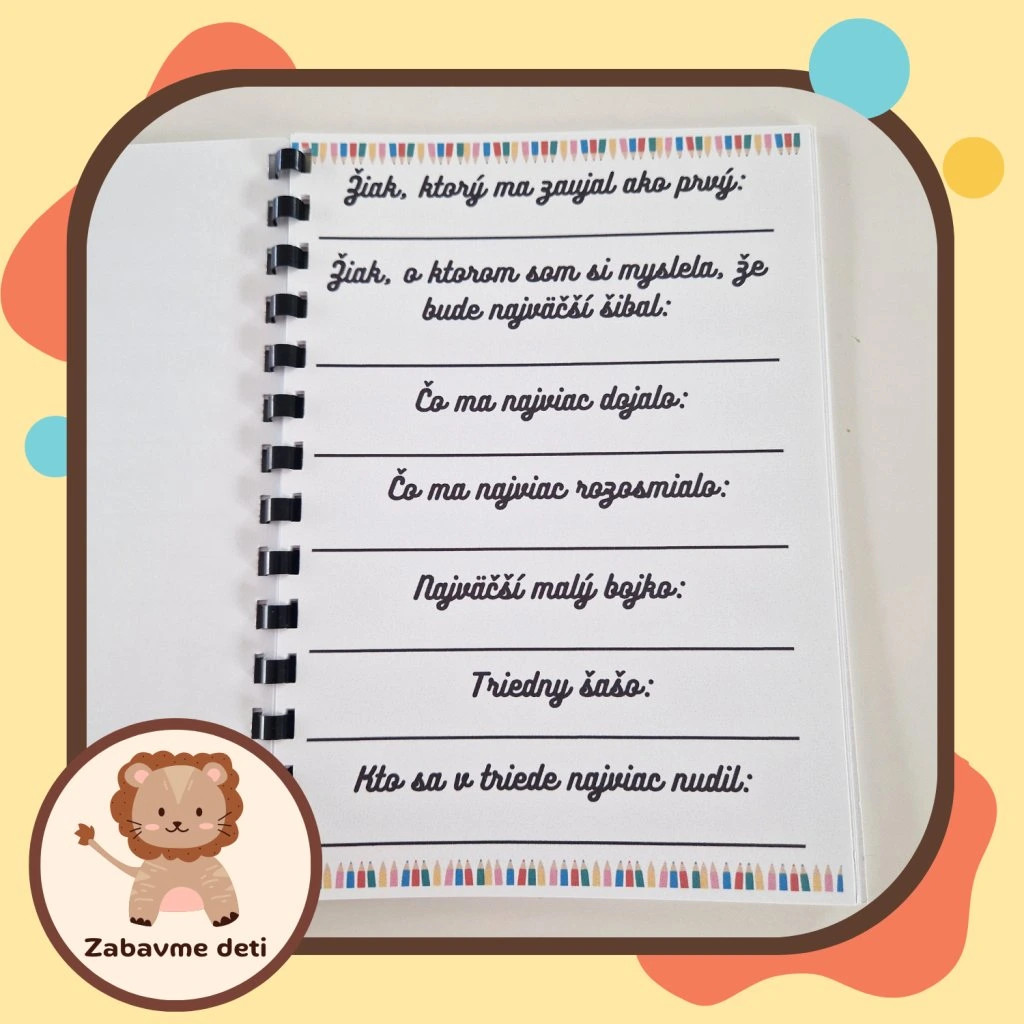 Žiak, ktorý ma zaujal ako prvý:
Žiak, o ktorom som si myslela, že
bude najväčší šibal:
Čo ma najviac dojalo:
Čo ma najviac rozosmialo:
Najväčší malý bojko:
Triedny šašo:
Kto sa v triede najviac nudil:
Zabavme deti